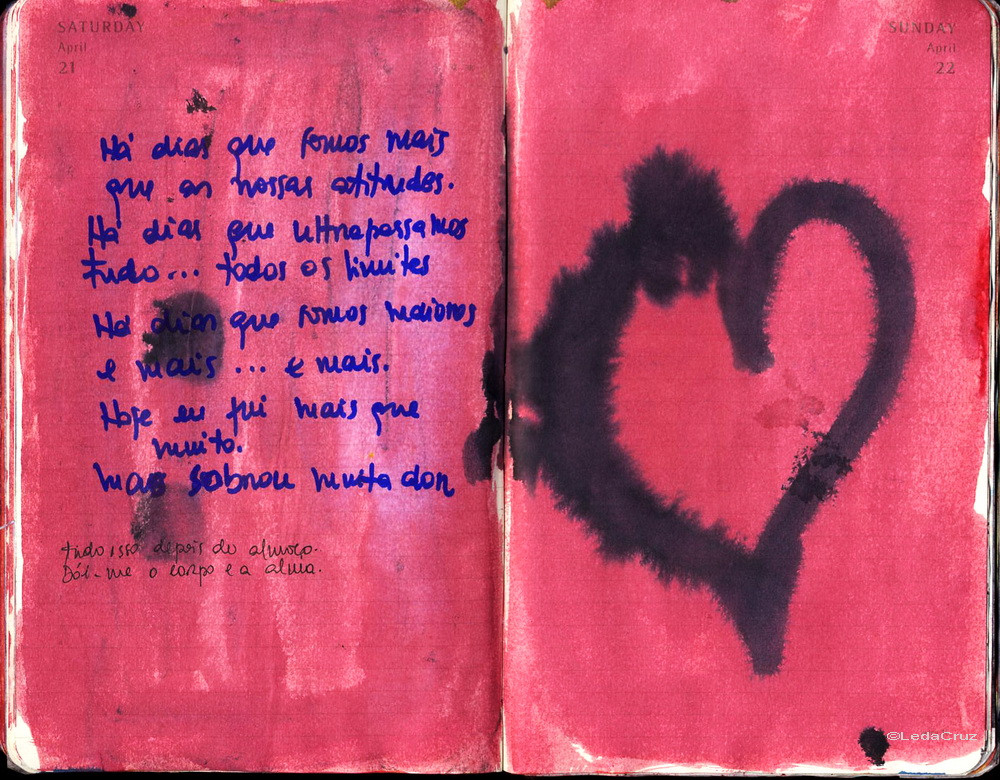 SATURDAY
April
21
Há dias que somos mais
que as nossas atitudes.
Há dias que ultrapassamos
tudo... todos os limites
Há dias que somos maiores
e mais ... e mais.
Hoje eu fui mais que
muito.
Mas sobrou muita dor
tudo isso depois do almoço.
Dói-me o corpo e a alma.
SUNDAY
April
22
©LedaCruz